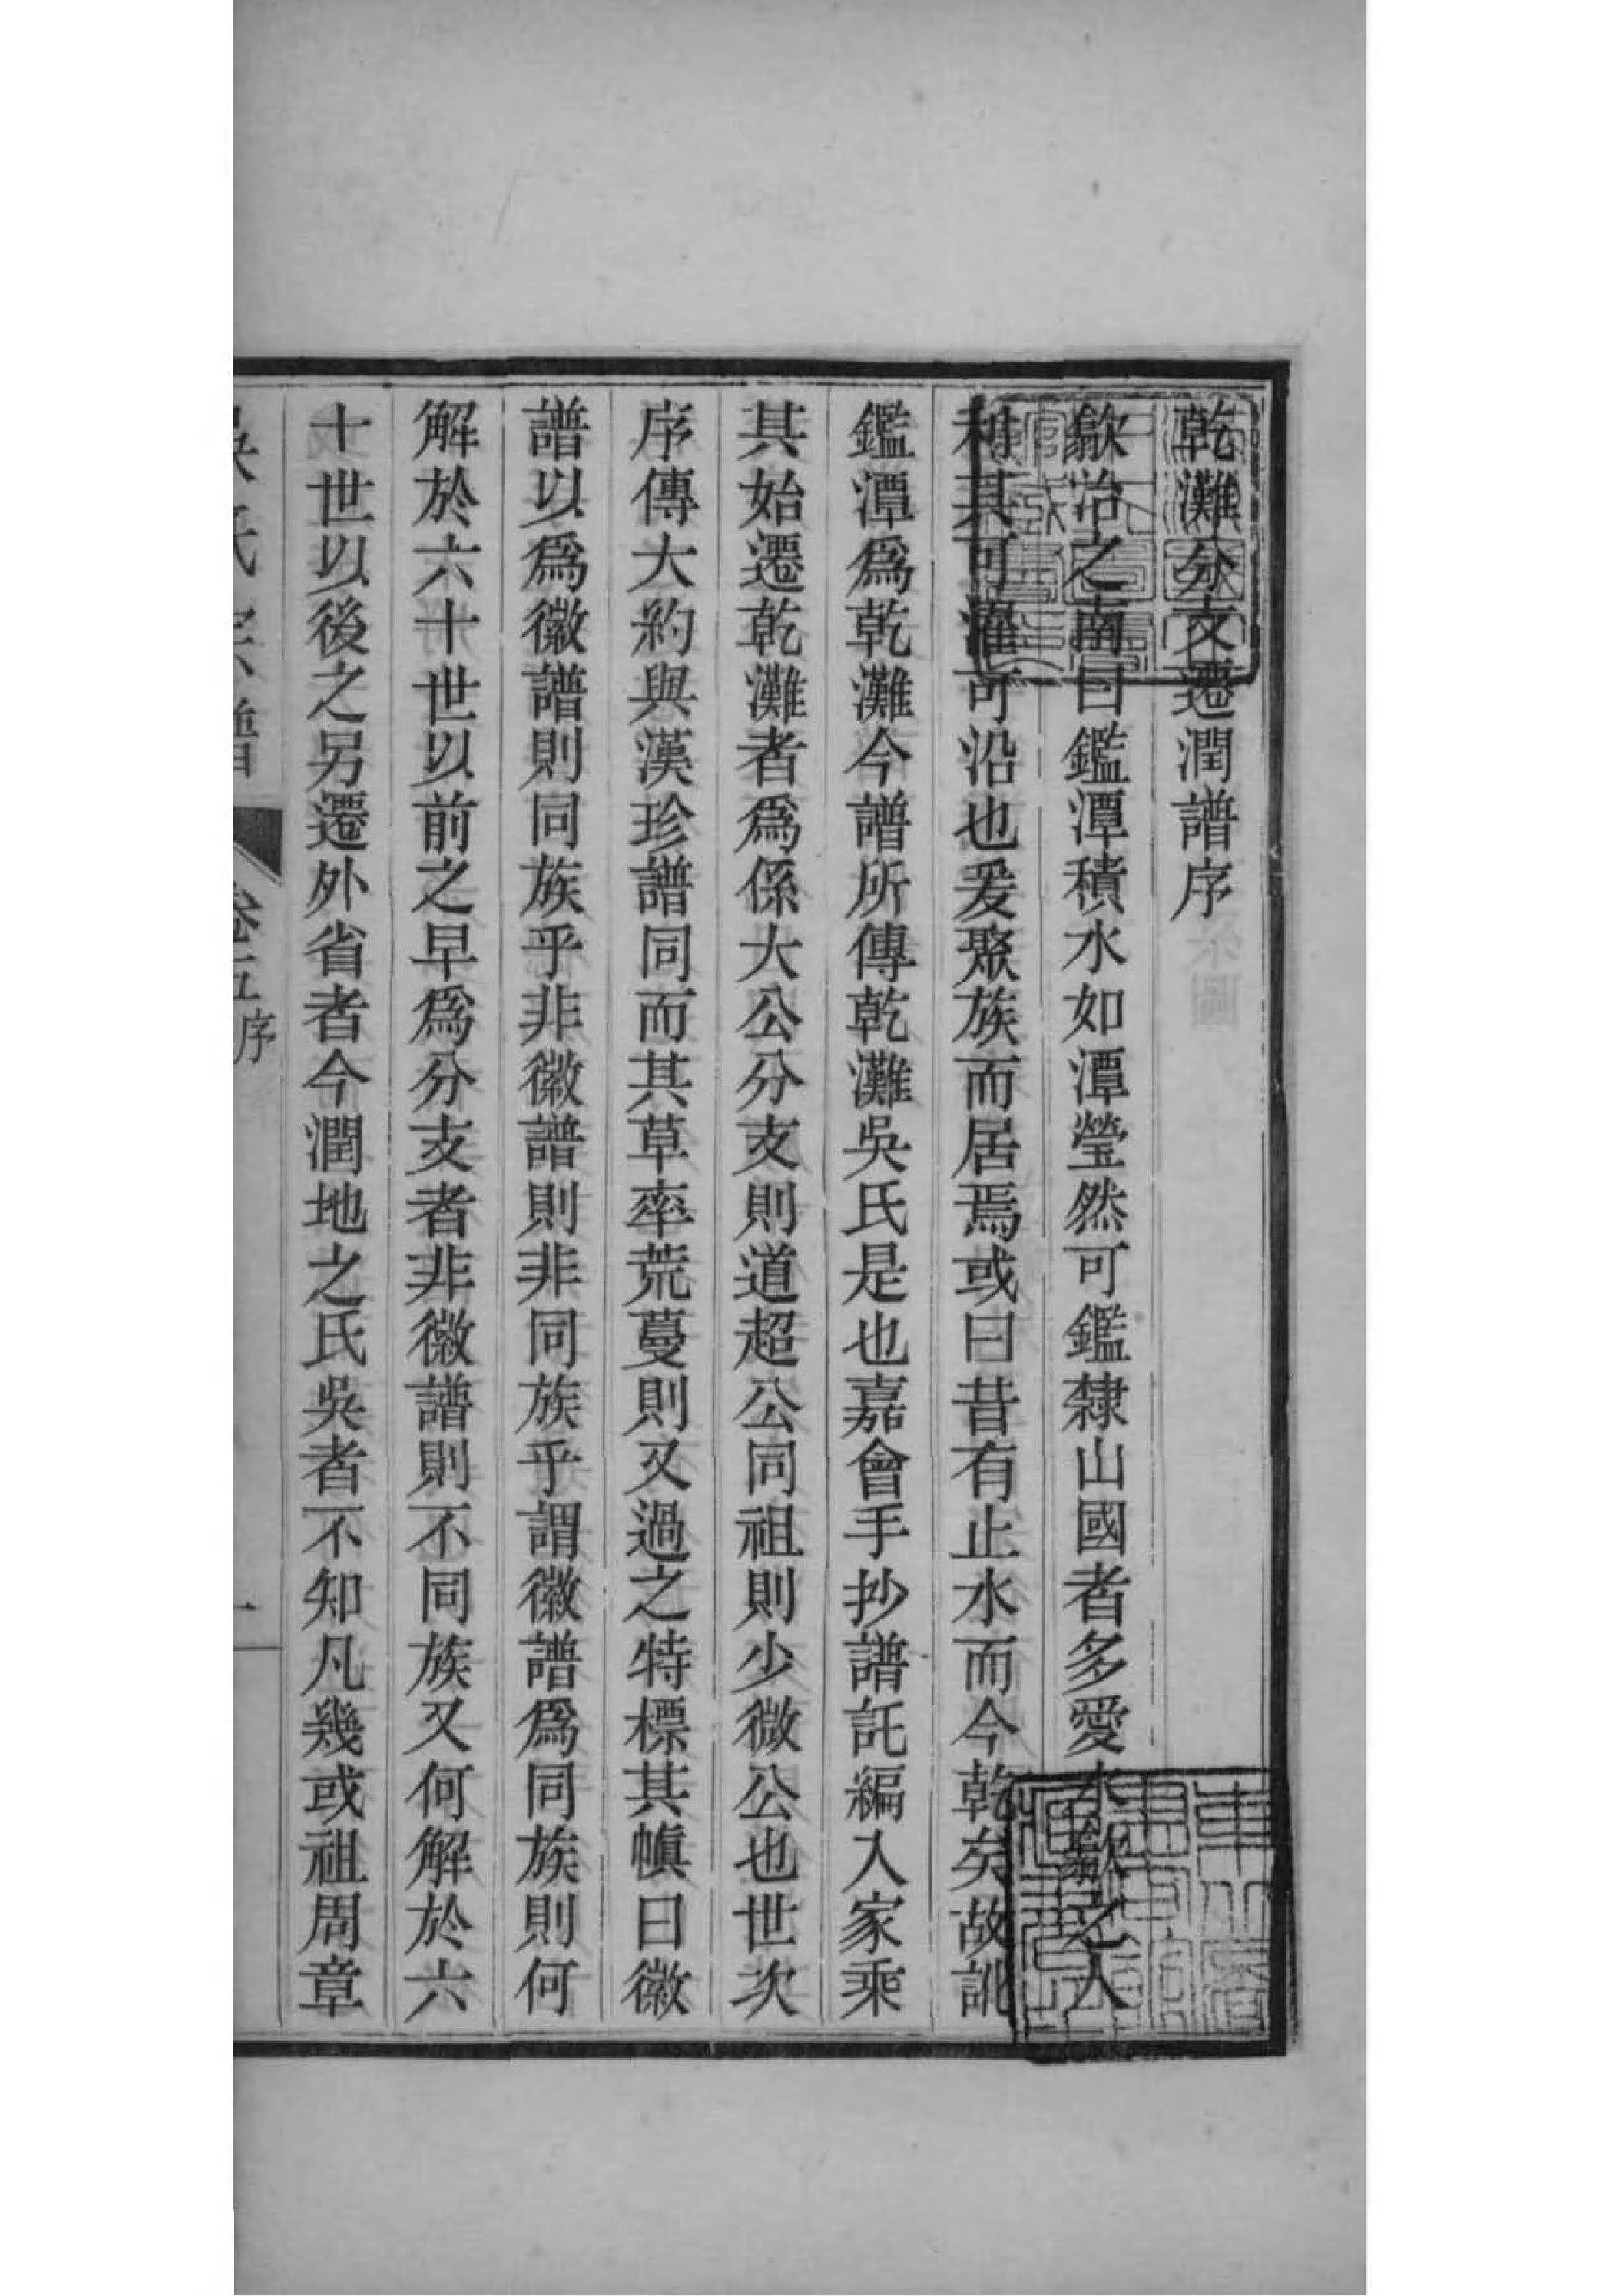 乾灘分支遷潤譜序
歙治之南曰鑑潭積水如潭瑩然可鑑隸山國者多愛水歙之人
利其可灌可沿也爰聚族而居焉或曰昔有止水而今乾矣故訛
鑑潭爲乾灘今譜所傳乾灘吳氏是也嘉會手抄譜託編入家乘
其始遷乾灘者爲係大公分支則道超公同祖則少微公也世次
序傳大約與漢珍譜同而其草率荒蔓則又過之特標其幀曰徽
譜以爲徽譜則同族乎非徽譜則非同族乎謂徽譜爲同族則何
解於六十世以前之早爲分支者非徽譜則不同族又何解於六
十世以後之另遷外省者今潤地之氏吳者不知凡幾或祖周章
吳氏宗譜 卷五序 一